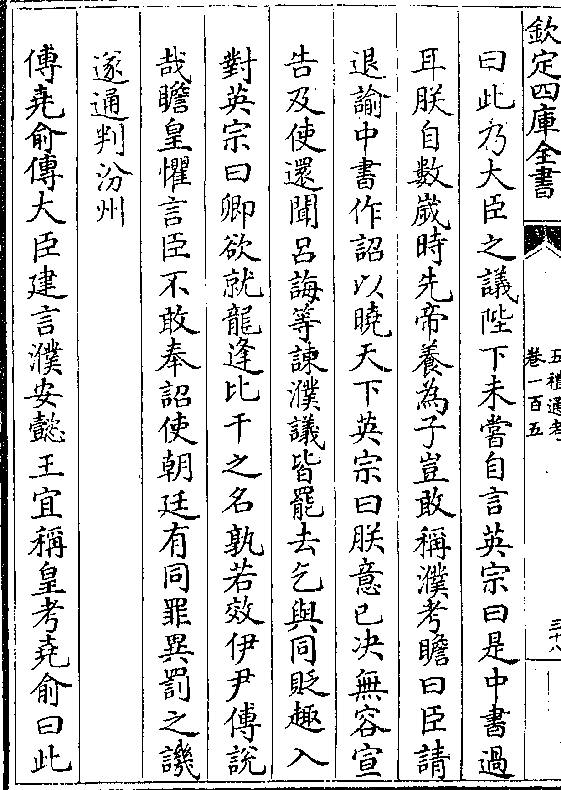 欽定四庫全書
五禮通考
卷一百五
三十八
曰此乃大臣之議陛下未嘗自言英宗曰是中書過
耳朕自數歲時先帝養為子豈敢稱濮考瞻曰臣請
退諭中書作詔以曉天下英宗曰朕意已决無容宣
告及使還聞呂誨等諫濮議皆罷去乞與同貶趣入
對英宗曰卿欲就龍逢比干之名孰若效伊尹傅說
哉瞻皇懼言臣不敢奉詔使朝廷有同罪異罰之譏
遂通判汾州
傅堯俞傳大臣建言濮安懿王宜稱皇考堯俞曰此